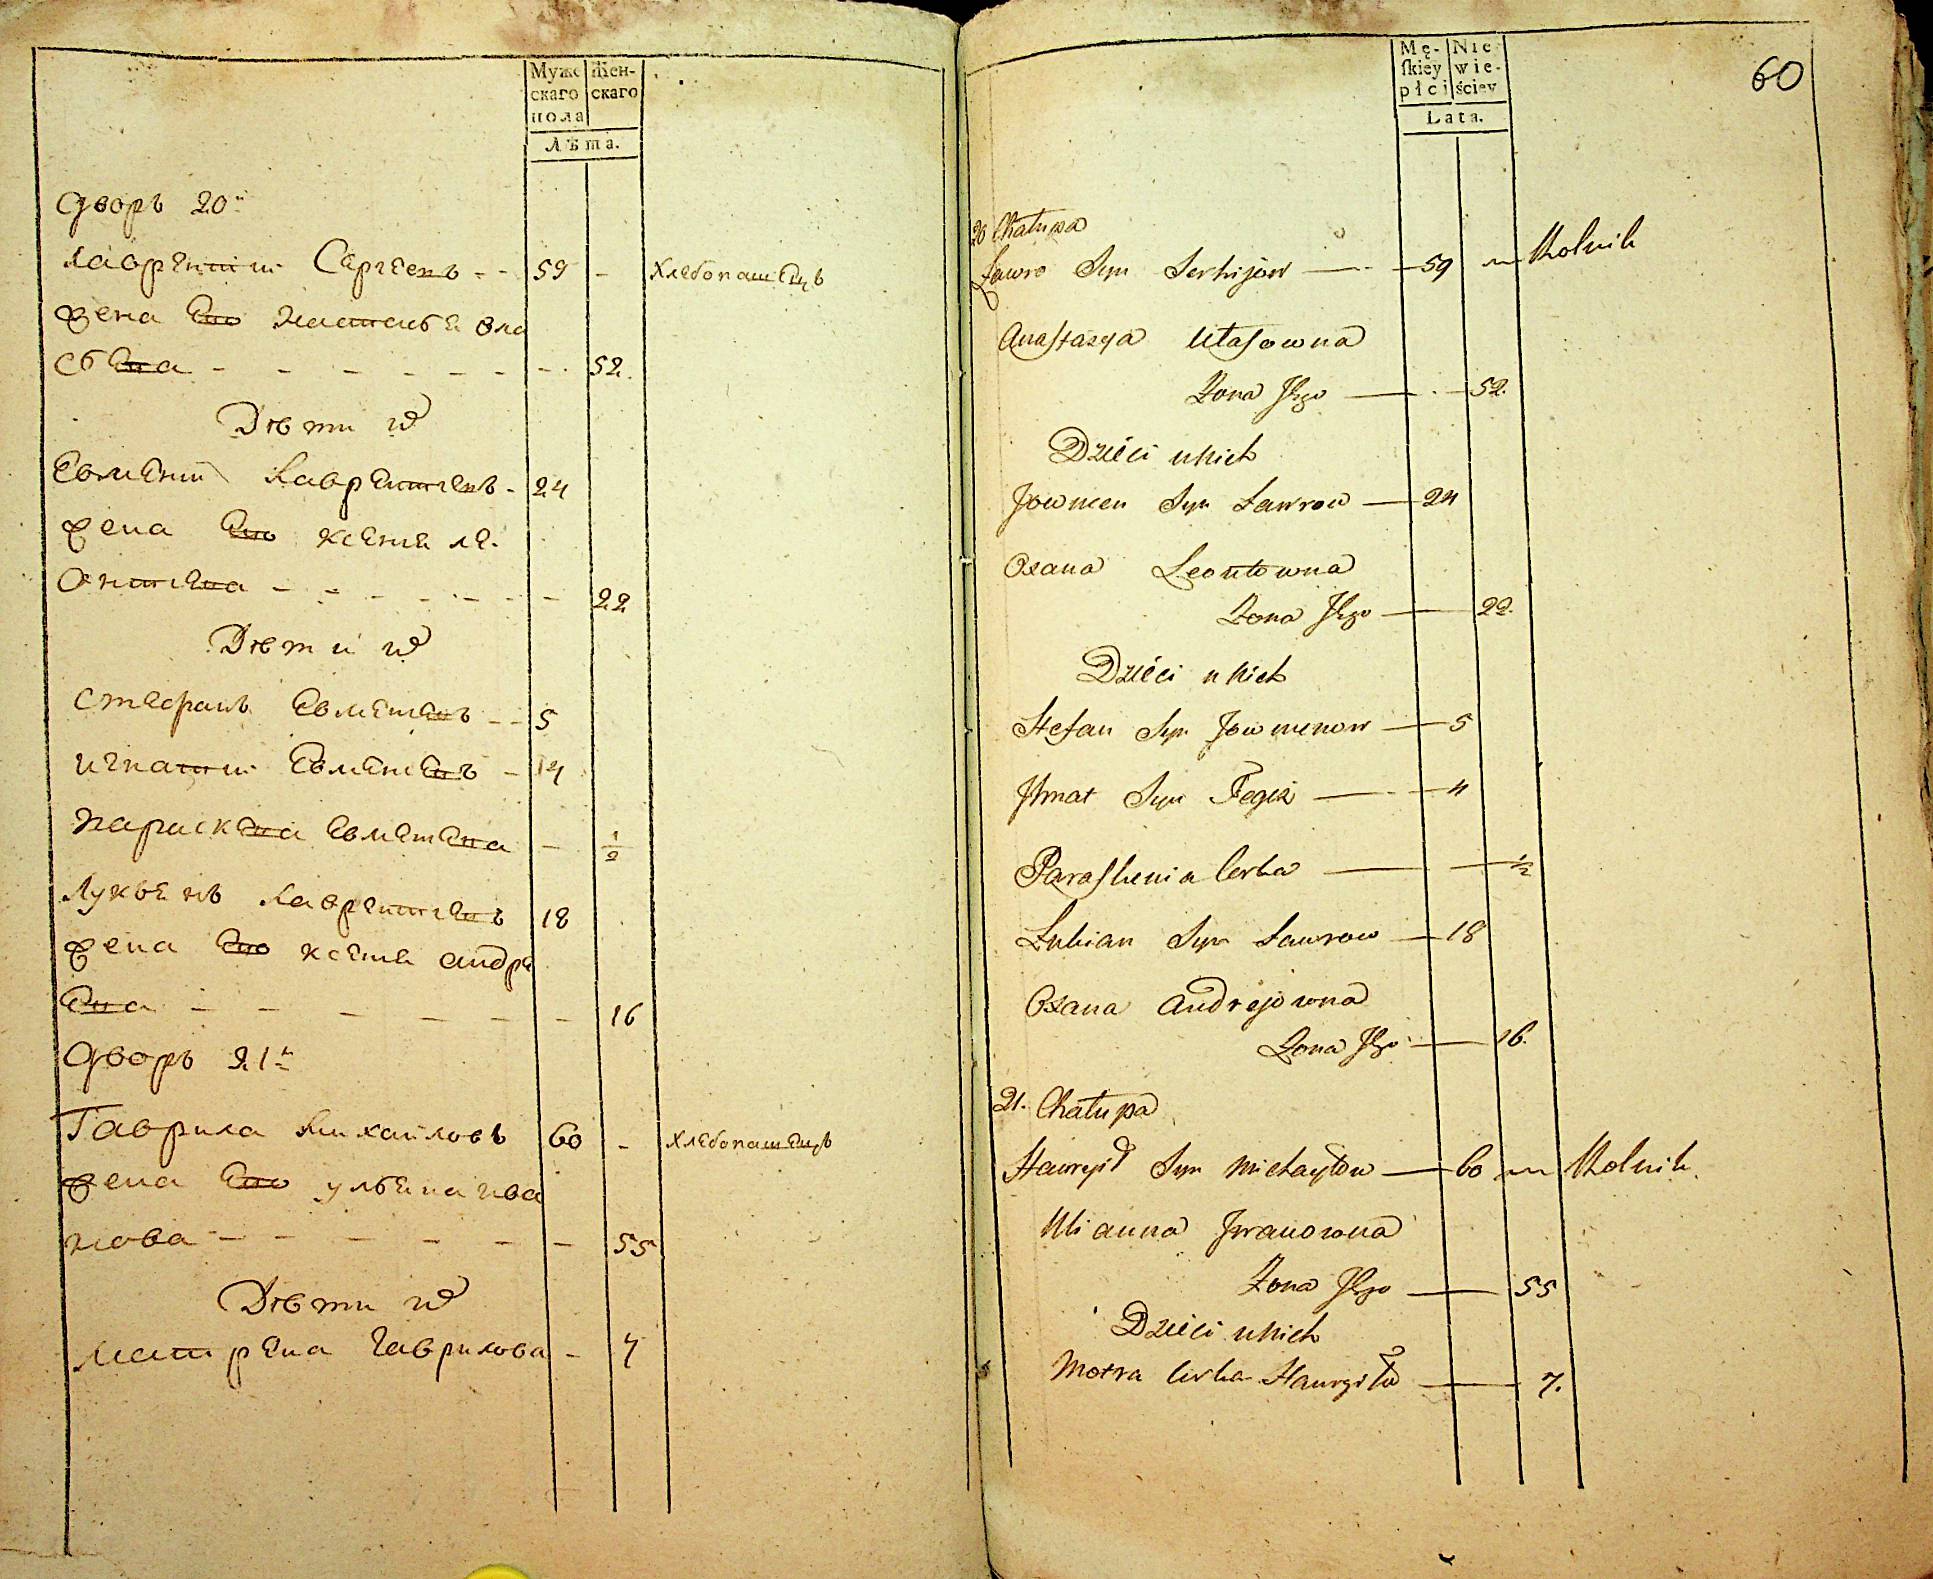 Муже
скаго
пола
Жен-
скаго
Лѣта.
Дворъ 20й
Лаврентии Сергеевъ - - 59 - Хлебопашецъ
жена Его Настасья Вла
сьева - - - - - - - 52.
Дѣти их
Евмений Лаврентьевъ - 24
жена Его Ксенья Ле-
онтьева - - - - - - 22
Дѣти их
Стефанъ Евменьевъ - - 5
Игнатии Евменьевъ - 4
Параскева Евменьева - 1/2
Лукьянъ Лаврентьевъ 18
жена Его Ксенья Андре
Ева - - - - - - 16
Дворъ 21й
Гаврила Михайловъ 60 - Хлебопашецъ
жена Его Ульяна Ива
нова - - - - - - 55
Дѣти их
Матрена Гаврилова - 7
60
Mę-
skiey
płci
Nie
wie-
ściey
Lata.
20 Chałupa
Ławro Syn Serhijow — 59 — Rolnik
Anastazya Własowna
Żona Jego — 52.
Dzieci u Nich
Jowmen Syn Ławrow — 24
Oxana Leontowna
Żona Jego — 22.
Dzieci u Nich
Stefan Syn Jowmenow — 5
Ihnat Syn Tegoż — 4
Paraskewia Corka — 1/2
Łukian Syn Ławrow — 18
Oxana Andrejowna
Żona Jego — 16.
21. Chałupa
Hawryił Syn Michayłow — 60 — Rolnik.
Ulianna Iwanowna
Żona Jego — 55
Dzieci u Nich
Motra Corka Hawryiła — 7.